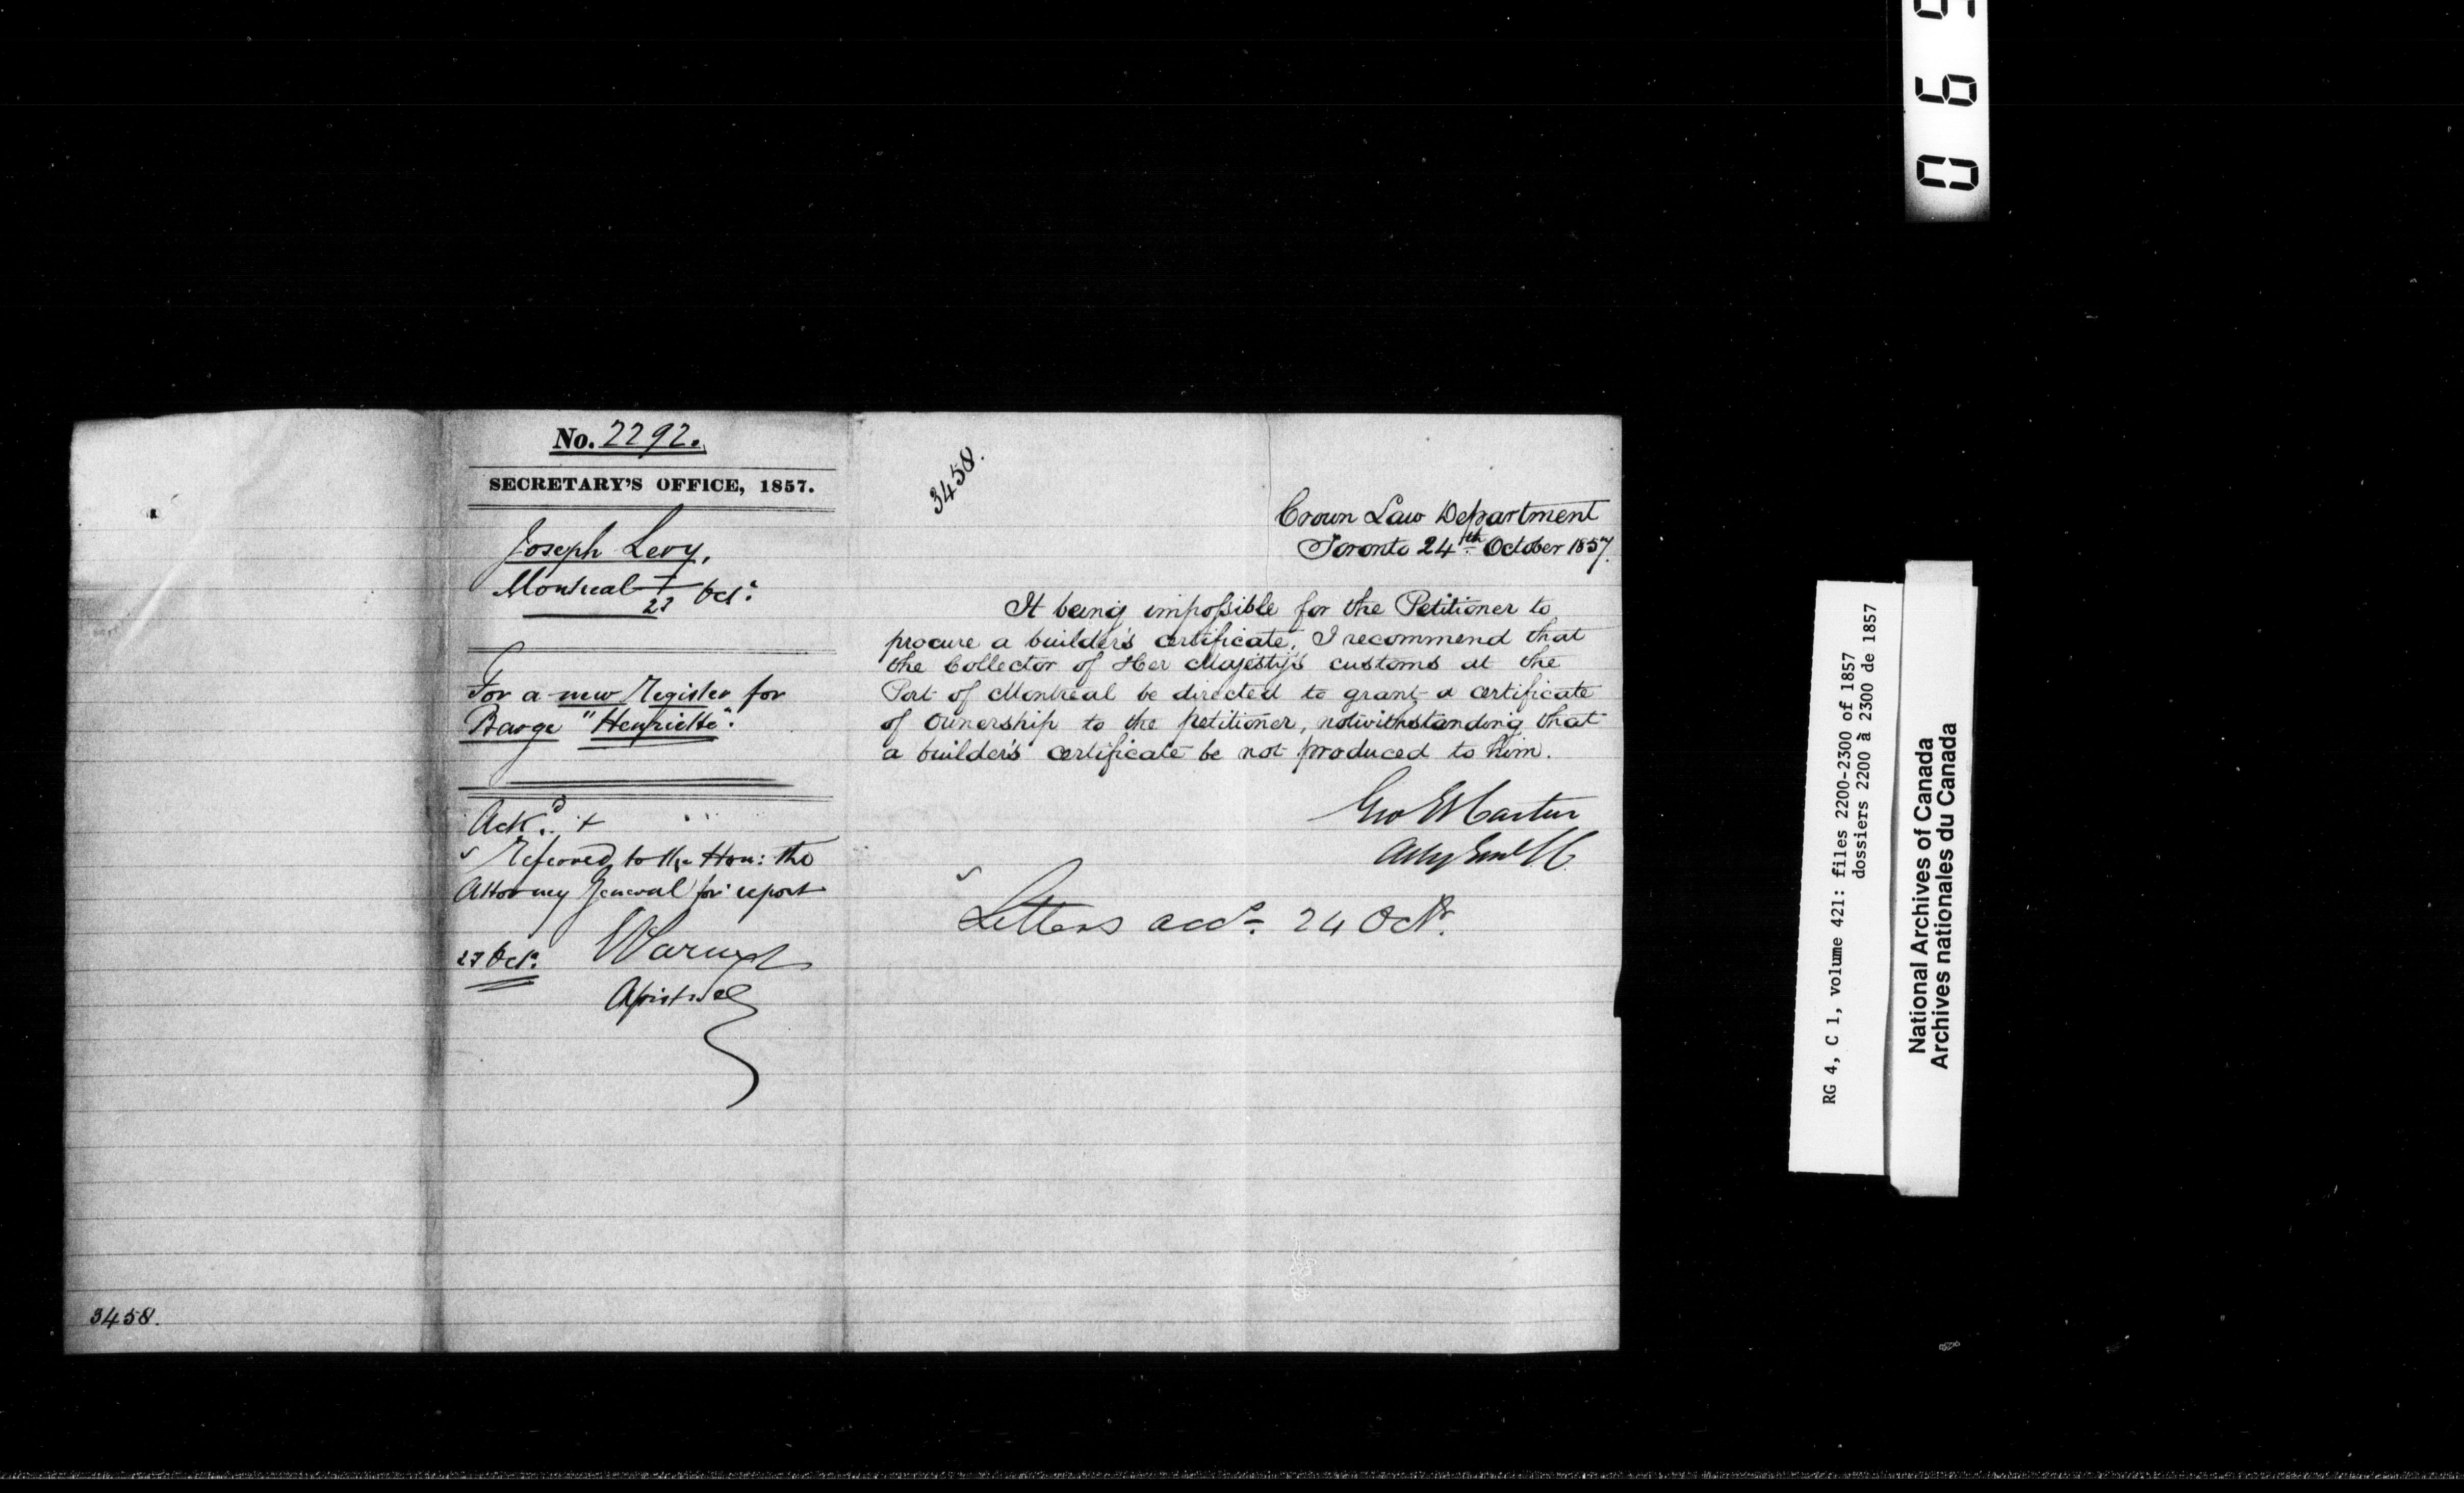 No. 2292.
SECRETARY'S OFFICE, 1857.
Joseph Levy,
Montreal 7/23 Oct:
For a new Register for
Barge "Henriette".
Ackd. +
Referred to the Hon: the
Attorney General for report
23 Oct:
3458.
3458.
Crown Law Department
Toronto 24th October 1857.
It being impossible for the Petitioner to
procure a builder's certificate, I recommend that
the Collector of Her Majesty's customs at the
Port of Montreal be directed to grant a certificate
of ownership to the petitioner, notwithstanding that
a builder's certificate be not produced to him.
Geo E Cartier
Atty Genl LC
Letters accd. 24 Octr.
RG 4, C 1, volume 421: files 2200-2300 of 1857
dossiers 2200 à 2300 de 1857
National Archives of Canada
Archives nationales du Canada
0 6 9